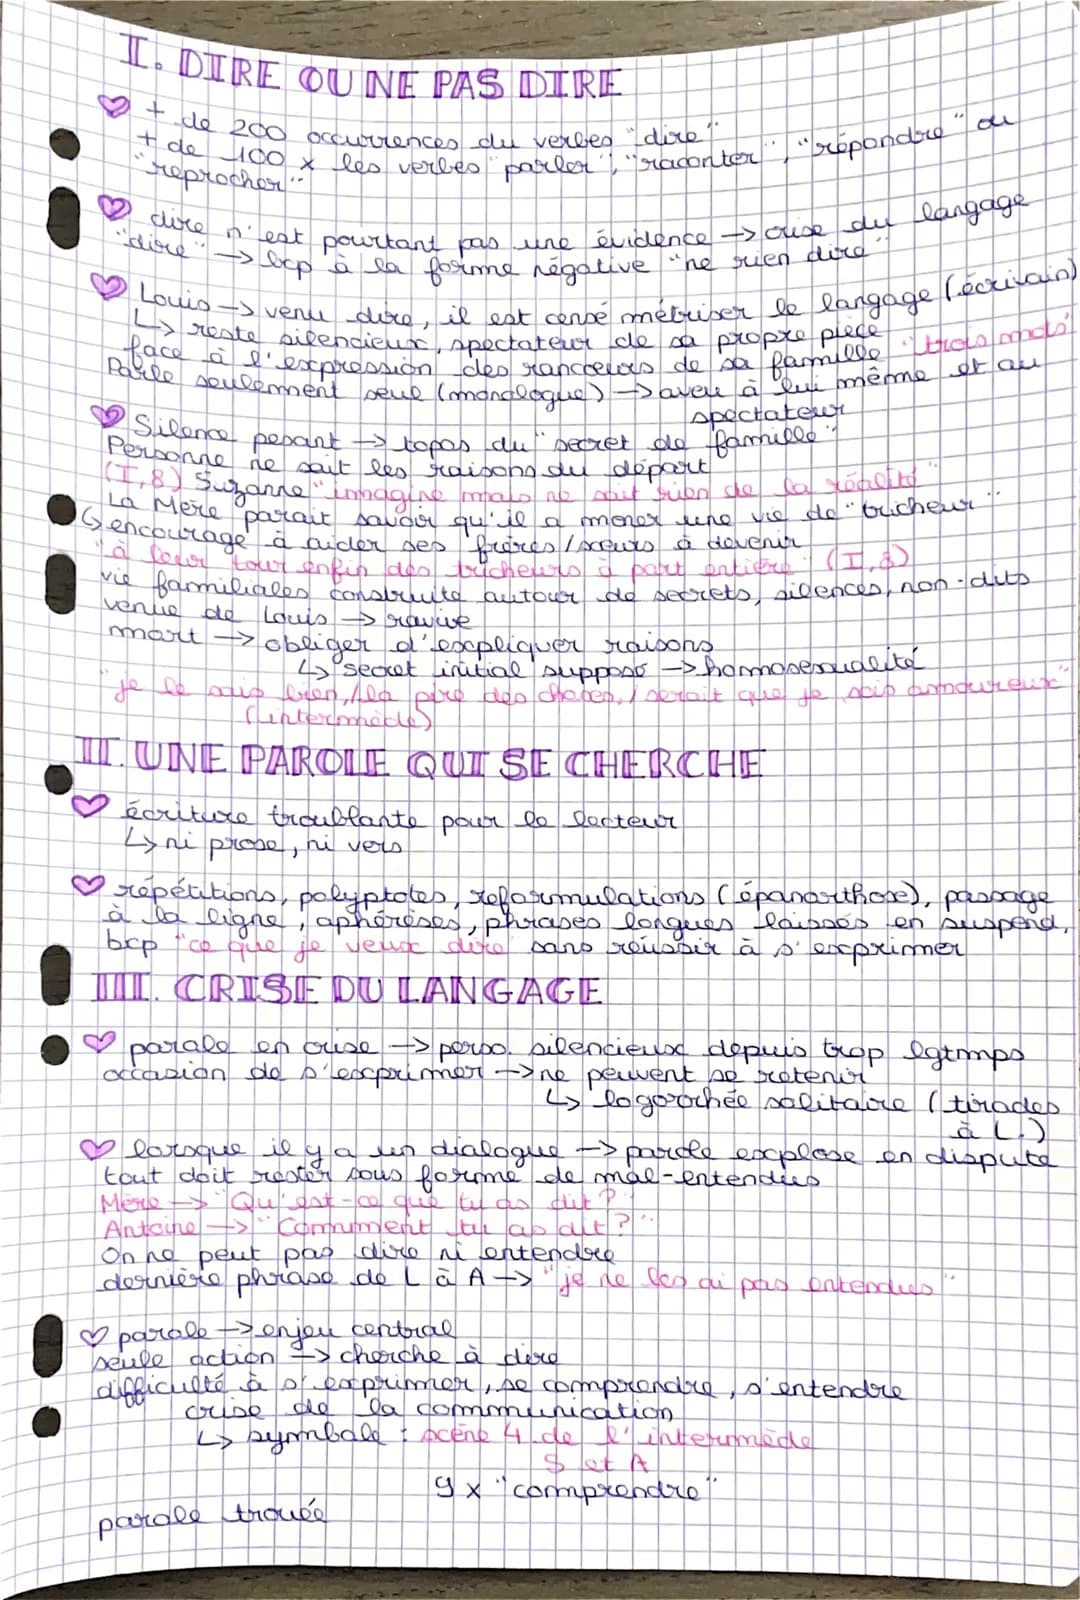 I. DIRE OU NE PAS DIRE
+ de 200 occurrences du verbes "dire"
+ de 100 x les verbes "parler", "raconter", "répondre" ou
"reprocher"
dire n'est pourtant pas une évidence → crise du langage
"dire" → bcp à la forme négative "ne rien dire"
Louis → venu dire, il est censé métriser le langage (écrivain)
↳ reste silencieux, spectateur de sa propre pièce
face à l'expression des rancoeurs de sa famille "trois mots"
Parle seulement seul (monologue) → aveu à lui même et au
spectateur
Silence pesant → topos du "secret de famille"
Personne ne sait les raisons du départ
(I,8) Suzanne "immagine mais ne sait rien de la réalité"
La Mère parait savoir qu'il a mener une vie de "tricheur"
↳ encourage à aider ses frères/soeurs à devenir
"à leur tour enfin des tricheurs à part entière" (I,8)
vie familiales construite autour de secrets, silences, non-dits
venue de Louis → ravive
mort → obliger d'expliquer raisons
↳ secret initial supposé → homosexualité
"je le sais bien, / la pire des choses, / serait que je sois amoureux"
(intermède)
II. UNE PAROLE QUI SE CHERCHE
écriture troublante pour le lecteur
↳ ni prose, ni vers
répétitions, polyptotes, reformulations (épanorthose), passage
à la ligne, aphérèses, phrases longues laissés en suspend,
bcp "ce que je veux dire" sans réussir à s'exprimer
III. CRISE DU LANGAGE
parole en crise → perso. silencieux depuis trop lgtmps
occasion de s'exprimer → ne peuvent se retenir
↳ logorrhée solitaire (tirades
à L.)
lorsque il y a un dialogue → parole explose en dispute
tout doit rester sous forme de mal-entendus
Mère → "Qu'est-ce que tu as dit?"
Antoine → "Comment tu as dit?"
On ne peut pas dire ni entendre
dernière phrase de L à A → "je ne les ai pas entendus"
parole → enjeu central
seule action → cherche à dire
difficulté à s'exprimer, se comprendre, s'entendre
crise de la communication
↳ symbole : scène 4 de l'intermède
S et A
9 x "comprendre"
parole trouée